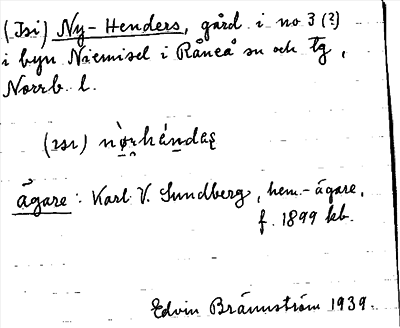 (Isi) Ny-Henders, gård i no 3 (?)
i byn Niemisel i Råneå sn och tg,
Norrb. l.
(ısı)
ägare: Karl V. Sundberg, hem.-ägare,
f. 1899 kb.
Edvin Brännström 1939.